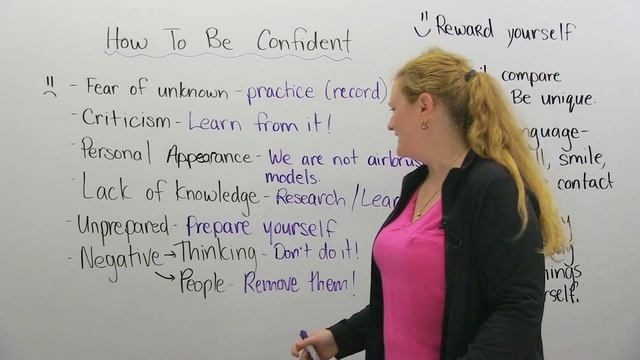 How To Be Confident
- Fear of unknown - practice (record)
- Criticism - Learn from it!
- Personal Appearance - We are not
models.
- Lack of knowledge - Research / Learn
- Unprepared - Prepare yourself
- Negative → Thinking - Don't do it!
→ People - Remove them!
Reward yourself
compare
Be unique.
smile,
contact